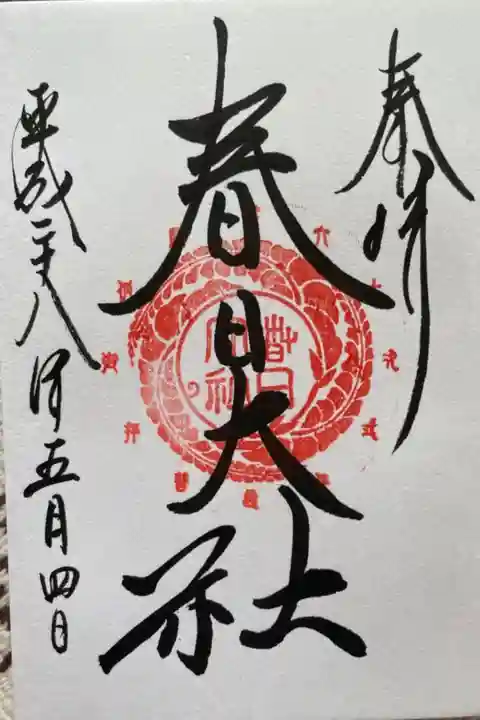 奉拝
春日大社
平成二十八年五月四日